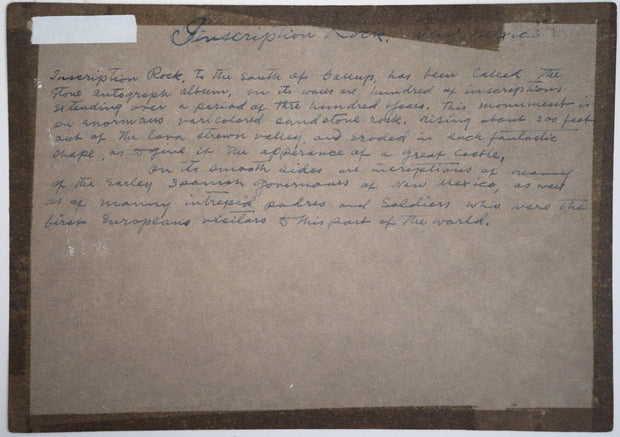 Inscription Rock. New Mexico
Inscription Rock, to the south of Gallup, has been called the
stone autograph album, on its walls are hundred of inscriptions
extending over a period of three hundred years. This monument is
an enormans varicolored sandstone rock. rising about 200 feet
out of the lava strewn valley, and eroded in such fantastic
shape, as to give it the apperance of a great castle,
on its smooth sides are incriptions of manny
of the earley Spanish governours of New Mexico, as well
as of manny intrepid padres and Soldiers who were the
first Europeans visitors to this part of the world.